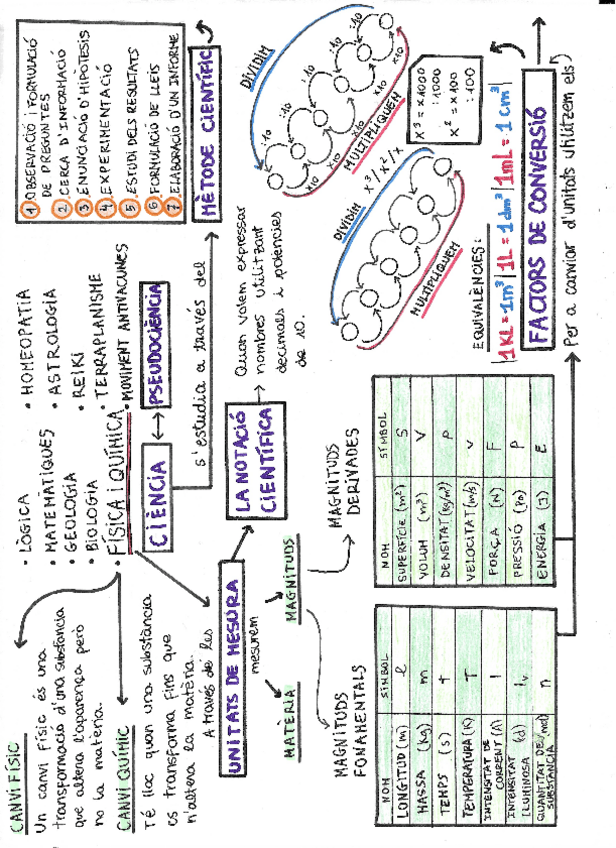 CANVI FÍSIC
Un canvi físic és una
transformació d'una substància
que altera l'aparença però
no la matèria.
CANVI QUÍMIC
Té lloc quan una substància
es transforma fins que
n'altera la matèria.
• LÒGICA
• MATEMÀTIQUES
• GEOLOGIA
• BIOLOGIA
• FÍSICA I QUÍMICA
CIÈNCIA
• HOMEOPATIA
• ASTROLOGIA
• REIKI
• TERRAPLANISME
• MOVIMENT ANTIVACUNES
PSEUDOCIÈNCIA
s'estudia a través del
1 OBSERVACIÓ I FORMULACIÓ
DE PREGUNTES
2 CERCA D'INFORMACIÓ
3 ENUNCIACIÓ D'HIPÒTESIS
4 EXPERIMENTACIÓ
5 ESTUDI DELS RESULTATS
6 FORMULACIÓ DE LLEIS
7 ELABORACIÓ D'UN INFORME
MÈTODE CIENTÍFIC
A través de les
UNITATS DE MESURA
mesurem
MATÈRIA
MAGNITUDS
LA NOTACIÓ
CIENTÍFICA
Quan volem expressar
nombres utilitzant
decimals i potències
de 10.
MAGNITUDS
FONAMENTALS
NOM SÍMBOL
LONGITUD (m) l
MASSA (kg) m
TEMPS (s) t
TEMPERATURA (K) T
INTENSITAT DE
CORRENT (A) I
INTENSITAT
LLUMINOSA (cd) Iv
QUANTITAT DE
SUBSTÀNCIA (mol) n
MAGNITUDS
DERIVADES
NOM SÍMBOL
SUPERFÍCIE (m²) S
VOLUM (m³) V
DENSITAT (kg/m³) ρ
VELOCITAT (m/s) v
FORÇA (N) F
PRESSIÓ (Pa) P
ENERGIA (J) E
DIVIDIM
:10 :10 :10 :10 :10
x10 x10 x10 x10 x10
MULTIPLIQUEM
DIVIDIM x³/x²/x
MULTIPLIQUEM
x³ = x1000
: 1000
x² = x100
: 100
EQUIVALÈNCIES:
1KL = 1m³ | 1L = 1dm³ | 1mL = 1cm³
FACTORS DE CONVERSIÓ
Per a canviar d'unitats utilitzem els